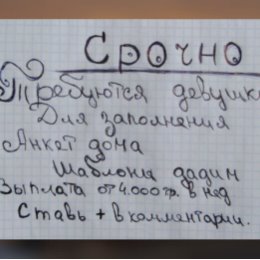 Срочно
Требуются девушки
Для заполнения
Анкет дома
Шаблоны дадим
Зыплата от 4.000 гр. в нед
Ставь + в комментарии.